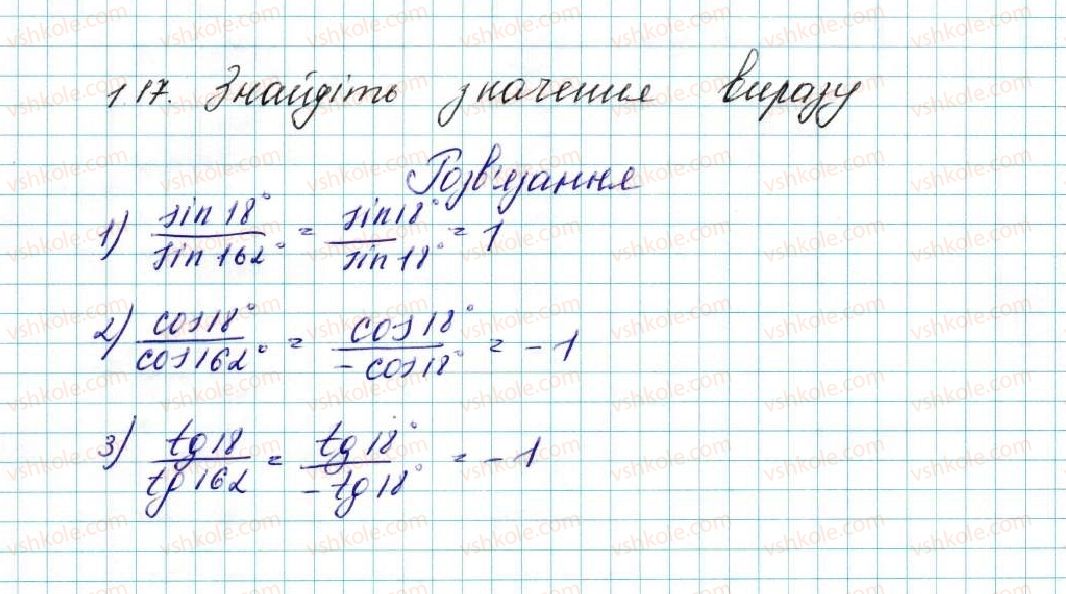 1.17. Знайдіть значення виразу
Розв'язання
1) sin 18° / sin 162° = sin 18° / sin 18° = 1
2) cos 18° / cos 162° = cos 18° / -cos 18° = -1
3) tg 18 / tg 162 = tg 18° / -tg 18° = -1
vshkole.com